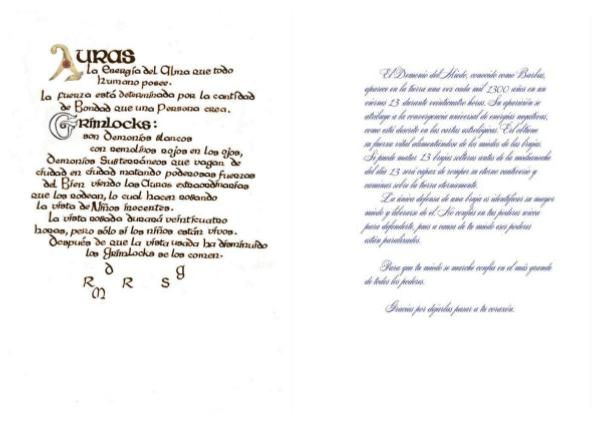 AURAS
La Energía del Alma que todo
humano posee.
La fuerza está determinada por la cantidad
de Bondad que una Persona crea.
GRIMLOCKS:
son Demonios blancos
con remolinos rojos en los ojos,
Demonios Subterráneos que vagan de
ciudad en ciudad matando poderosas fuerzas
del Bien viendo las Auras extraordinarias
que los rodean, lo cual hacen robando
la vista de Niños inocentes.
La vista robada durará veinticuatro
horas, pero sólo si los niños están vivos.
Después de que la vista usada ha disminuido
los Grimlocks se los comen.
El Demonio del Miedo, conocido como Barbas,
aparece en la tierra una vez cada mil 1300 años en un
viernes 13 durante veinticuatro horas. Su aparición se
atribuye a la convergencia universal de energías negativas,
como está descrito en las cartas astrológicas. Él obtiene
su fuerza vital alimentándose de los miedos de las brujas.
Si puede matar 13 brujas solteras antes de la medianoche
del día 13 será capaz de romper su eterno cautiverio y
caminar sobre la tierra eternamente.
La única defensa de una bruja es identificar su mayor
miedo y liberarse de él. No confíes en tus poderes
para defenderte, pues a causa de tu miedo esos poderes
están paralizados.
Para que tu miedo se marche confía en el más grande
de todos los poderes.
Gracias por dejarlas pasar a tu corazón.